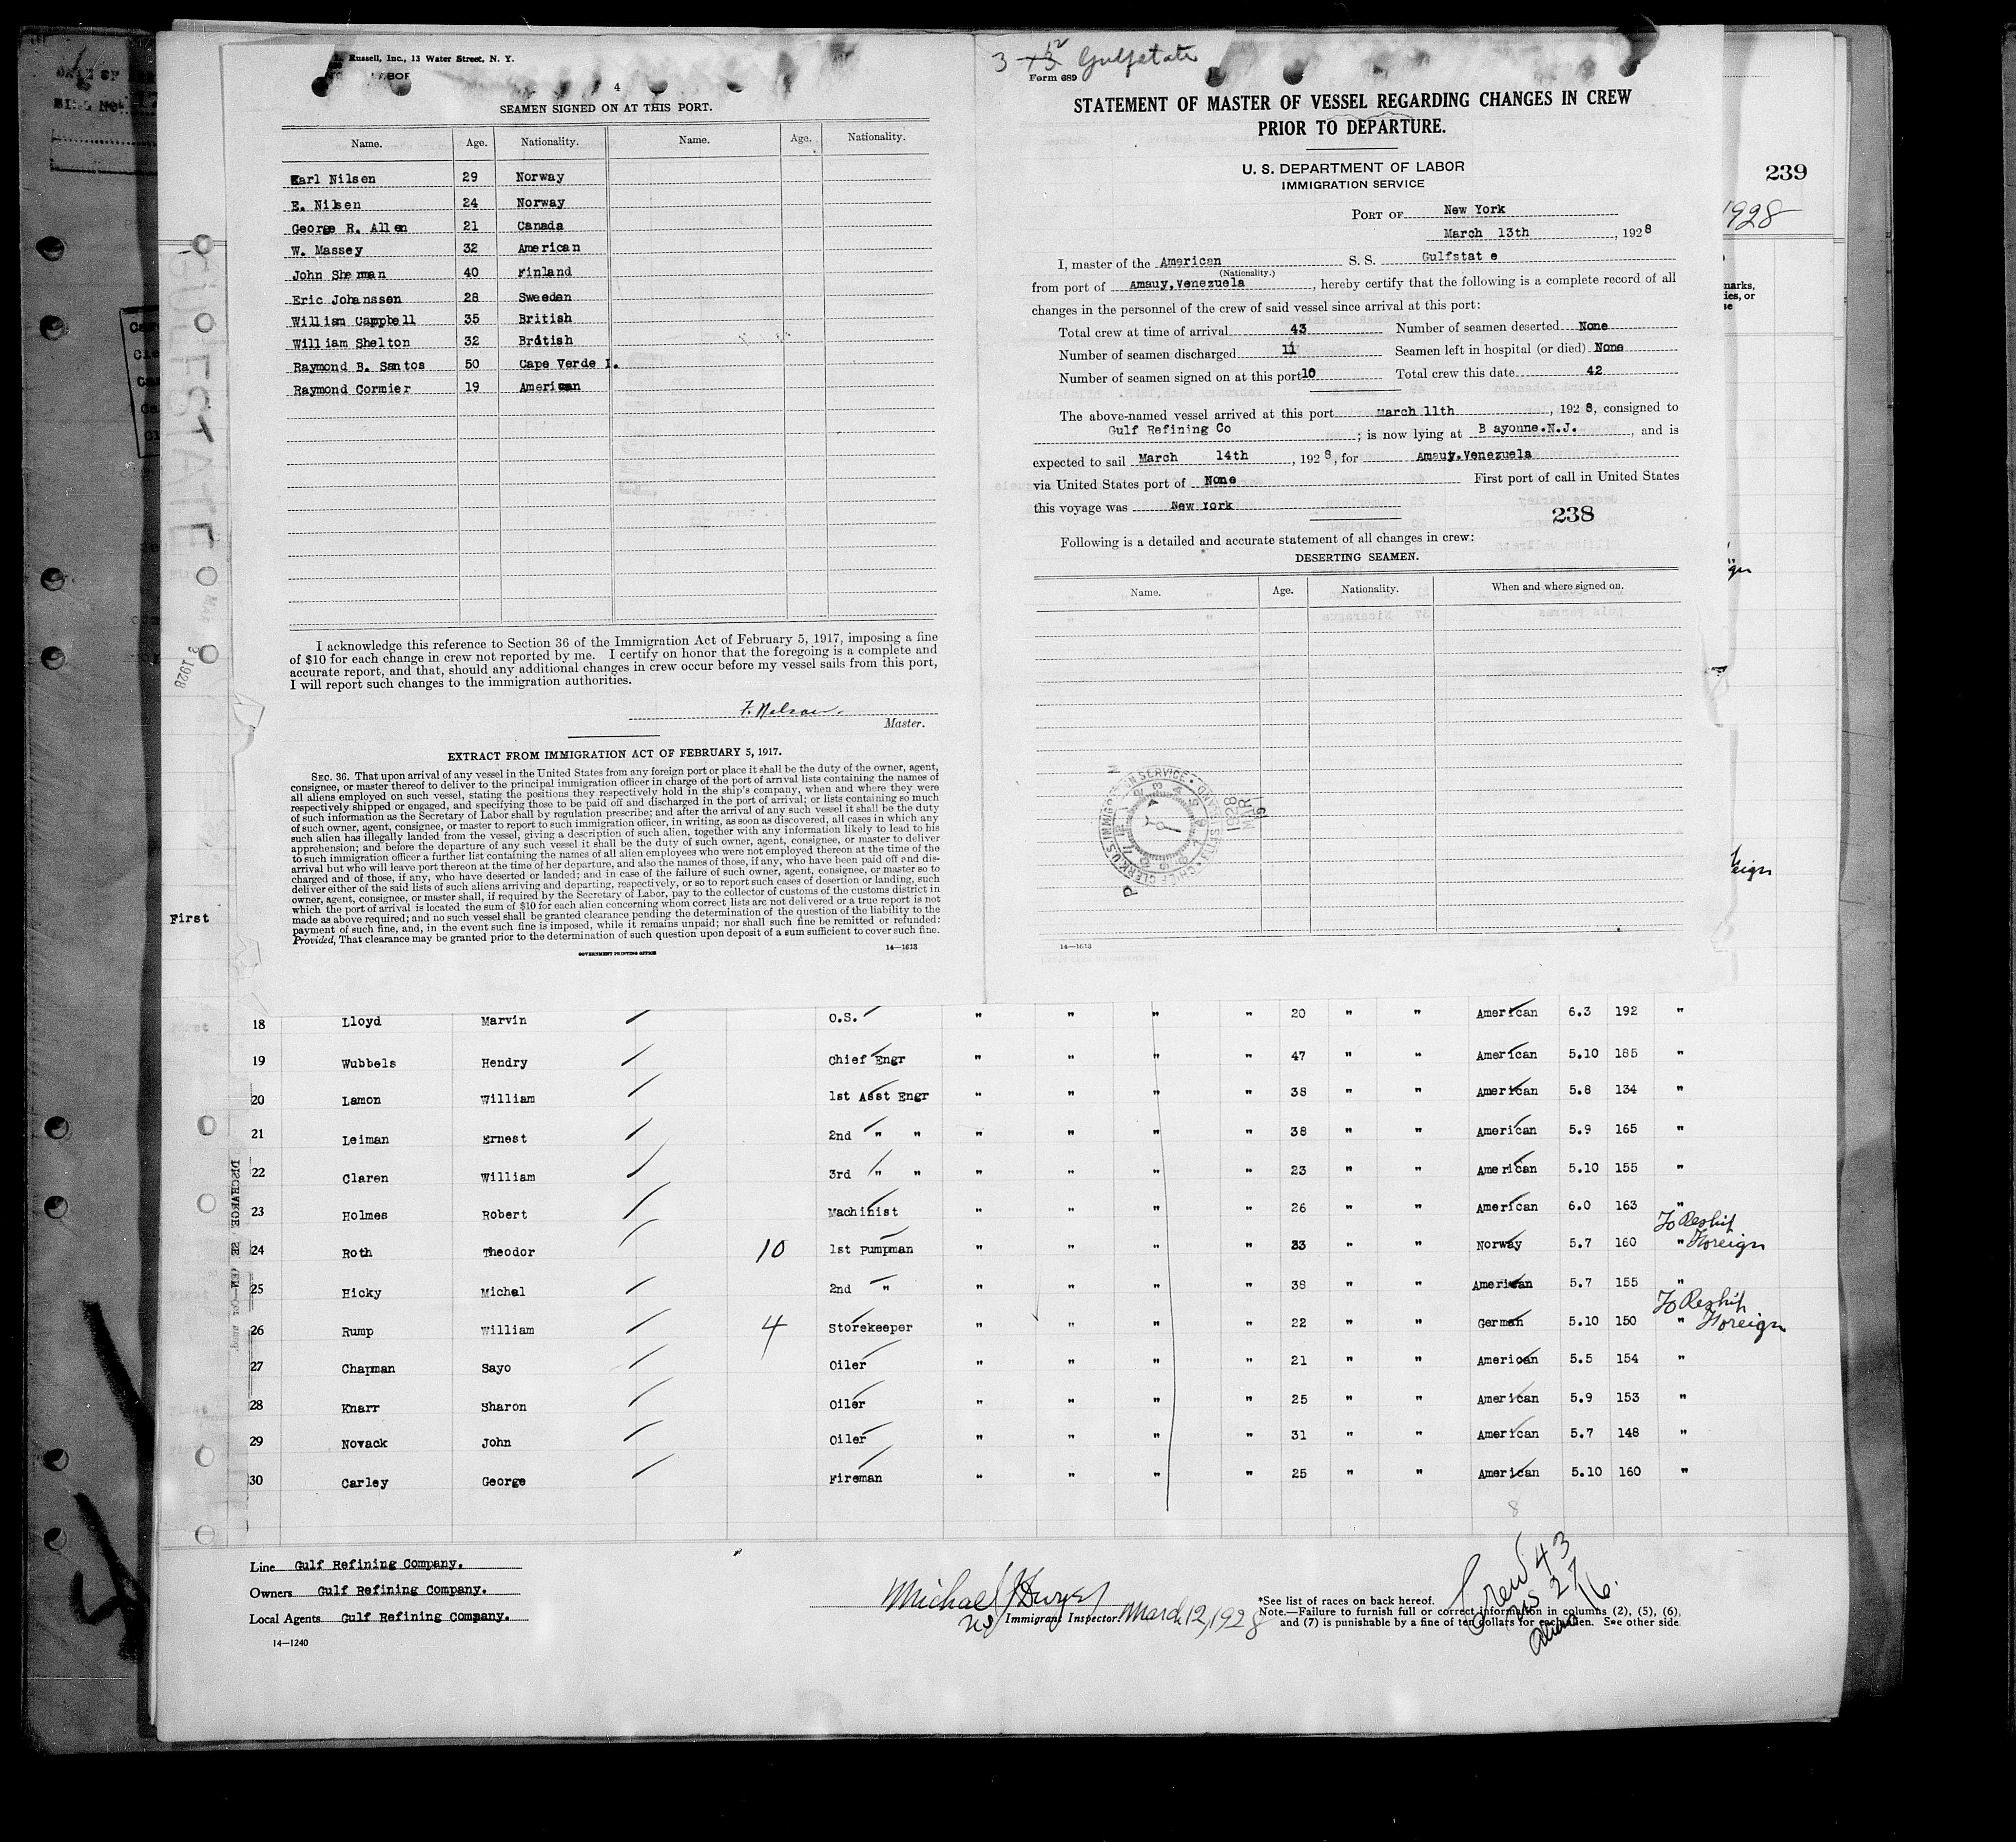 Russell, Inc., 13 Water Street, N. Y.
4
SEAMEN SIGNED ON AT THIS PORT.
Name. Age. Nationality. Name. Age. Nationality.
Karl Nilsen 29 Norway
E. Nilsen 24 Norway
George R. Allen 21 Canada
W. Massey 32 American
John Sherman 40 Finland
Eric Johanssen 28 Sweeden
William Campbell 35 British
William Shelton 32 British
Raymond B. Santos 50 Cape Verde I.
Raymond Cormier 19 American
I acknowledge this reference to Section 36 of the Immigration Act of February 5, 1917, imposing a fine
of $10 for each change in crew not reported by me. I certify on honor that the foregoing is a complete and
accurate report, and that, should any additional changes in crew occur before my vessel sails from this port,
I will report such changes to the immigration authorities.
F. Nelson.
Master.
EXTRACT FROM IMMIGRATION ACT OF FEBRUARY 5, 1917.
SEC. 36. That upon arrival of any vessel in the United States from any foreign port or place it shall be the duty of the owner, agent,
consignee, or master thereof to deliver to the principal immigration officer in charge of the port of arrival lists containing the names of
all aliens employed on such vessel, stating the positions they respectively hold in the ship's company, when and where they were
respectively shipped or engaged, and specifying those to be paid off and discharged in the port of arrival; or lists containing so much
of such information as the Secretary of Labor shall by regulation prescribe; and after the arrival of any such vessel it shall be the duty
of such owner, agent, consignee, or master to report to such immigration officer, in writing, as soon as discovered, all cases in which any
such alien has illegally landed from the vessel, giving a description of such alien, together with any information likely to lead to his
apprehension; and before the departure of any such vessel it shall be the duty of such owner, agent, consignee, or master to deliver
to such immigration officer a further list containing the names of all alien employees who were not employed thereon at the time of the
arrival but who will leave port thereon at the time of her departure, and also the names of those, if any, who have been paid off and dis-
charged and of those, if any, who have deserted or landed; and in case of the failure of such owner, agent, consignee, or master so to
deliver either of the said lists of such aliens arriving and departing, respectively, or so to report such cases of desertion or landing, such
owner, agent, consignee, or master shall, if required by the Secretary of Labor, pay to the collector of customs of the customs district in
which the port of arrival is located the sum of $10 for each alien concerning whom correct lists are not delivered or a true report is not
made as above required; and no such vessel shall be granted clearance pending the determination of the question of the liability to the
payment of such fine, and, in the event such fine is imposed, while it remains unpaid; nor shall such fine be remitted or refunded:
Provided, That clearance may be granted prior to the determination of such question upon deposit of a sum sufficient to cover such fine.
GOVERNMENT PRINTING OFFICE 14—1613
3 12 Gulfstate
Form 689
STATEMENT OF MASTER OF VESSEL REGARDING CHANGES IN CREW
PRIOR TO DEPARTURE.
U. S. DEPARTMENT OF LABOR
IMMIGRATION SERVICE
PORT OF New York
March 13th, 1928
I, master of the American S. S. Gulfstate
(Nationality.)
from port of Amauy,Venezuela, hereby certify that the following is a complete record of all
changes in the personnel of the crew of said vessel since arrival at this port:
Total crew at time of arrival 43 Number of seamen deserted None
Number of seamen discharged 11 Seamen left in hospital (or died) None
Number of seamen signed on at this port 10 Total crew this date 42
The above-named vessel arrived at this port March 11th, 1928, consigned to
Gulf Refining Co; is now lying at Bayonne.N.J., and is
expected to sail March 14th, 1928, for Amauy.Venezuela
via United States port of None First port of call in United States
this voyage was New York
238
Following is a detailed and accurate statement of all changes in crew:
DESERTING SEAMEN.
Name. Age. Nationality. When and where signed on.
14—1613
239
1928
GULFSTATE
First
18 Lloyd Marvin O.S. " " " " 20 " " American 6.3 192 "
19 Wubbels Hendry Chief Engr " " " " 47 " " American 5.10 185 "
20 Lamon William 1st Asst Engr " " " " 38 " " American 5.8 134 "
21 Leiman Ernest 2nd " " " " " " 38 " " American 5.9 165 "
22 Claren William 3rd " " " " " " 23 " " American 5.10 155 "
23 Holmes Robert Machinist " " " " 26 " " American 6.0 163 "
24 Roth Theodor 10 1st Pumpman " " " " 33 " " Norway 5.7 160 " To Reship Foreign
25 Hicky Michal 2nd " " " " " 38 " " American 5.7 155 "
26 Rump William 4 Storekeeper " " " " 22 " " German 5.10 150 " To Reship Foreign
27 Chapman Sayo Oiler " " " " 21 " " American 5.5 154 "
28 Knarr Sharon Oiler " " " " 25 " " American 5.9 153 "
29 Novack John Oiler " " " " 31 " " American 5.7 148 "
30 Carley George Fireman " " " " 25 " " American 5.10 160 "
8
Line Gulf Refining Company.
Owners Gulf Refining Company.
Local Agents Gulf Refining Company.
14—1240
Immigrant Inspector. March 12, 1928
*See list of races on back hereof.
Note.—Failure to furnish full or correct information in columns (2), (5), (6),
and (7) is punishable by a fine of ten dollars for each alien. See other side
Crew 43
US 27
Aliens 16.